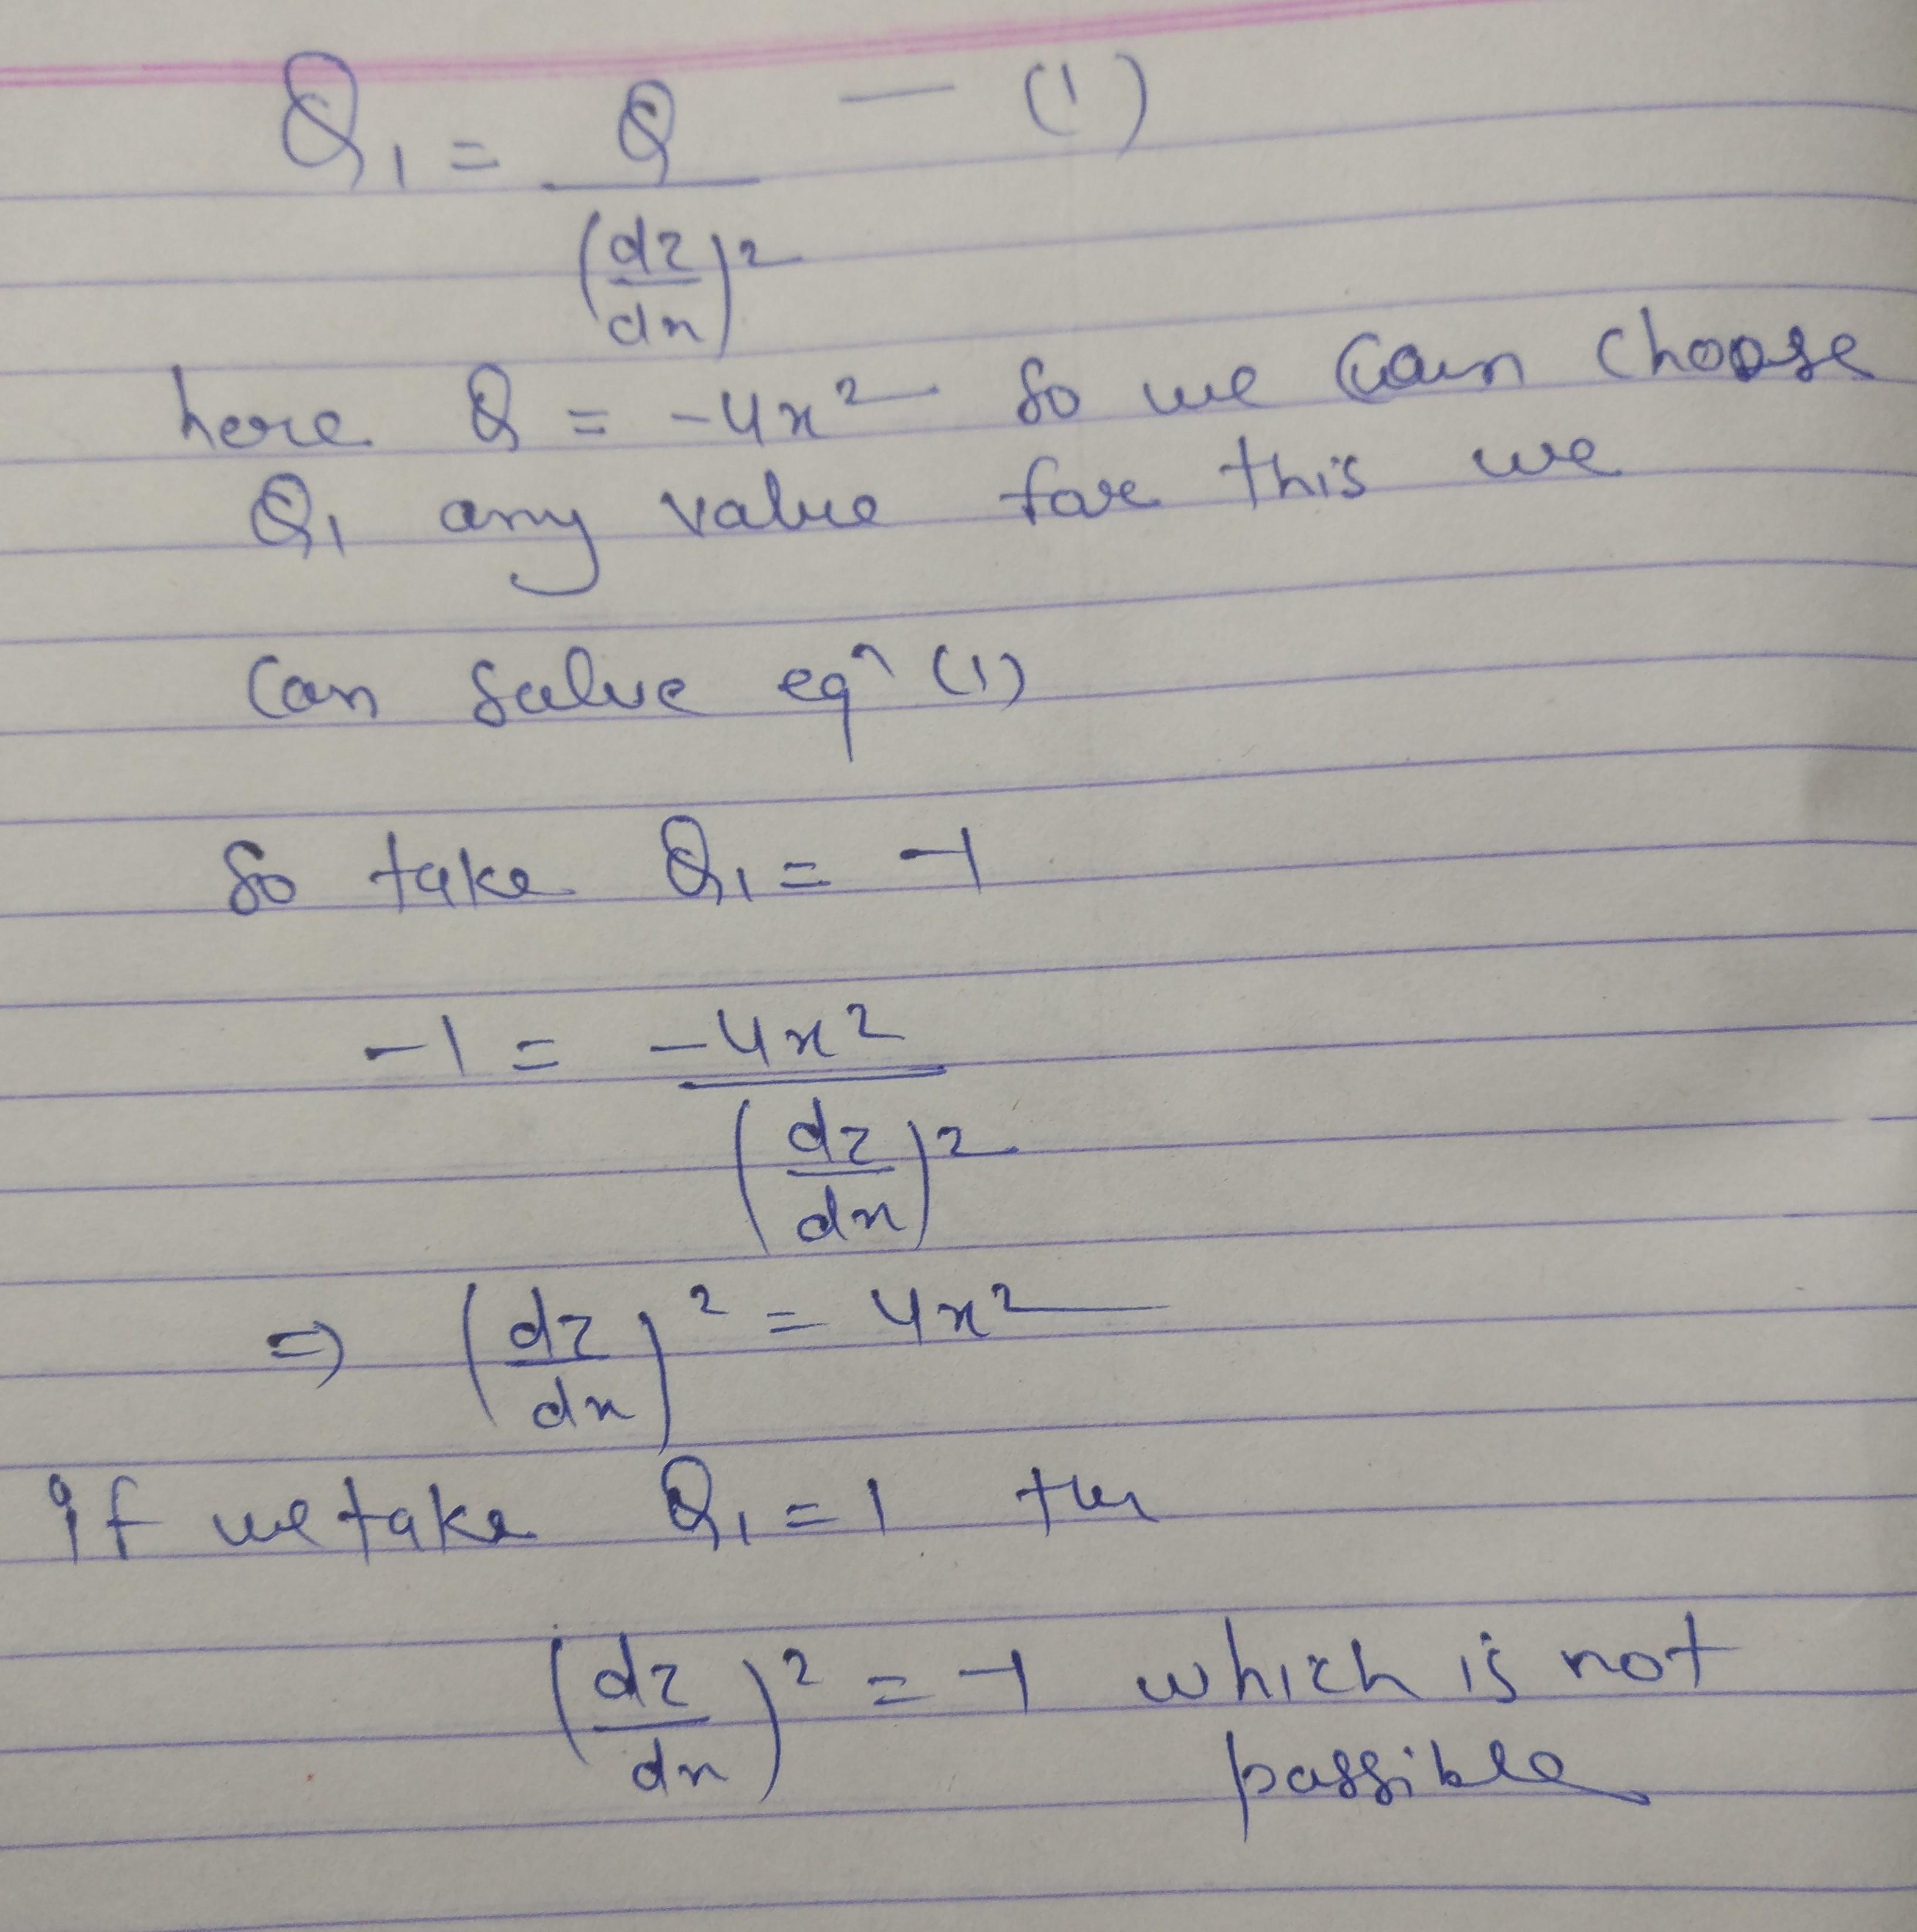 Q₁ = Q / (dz/dx)² — (1)
here Q = -4x² So we can choose
Q₁ any value for this we
can solve eqⁿ (1)
So take Q₁ = -1
-1 = -4x² / (dz/dx)²
⇒ (dz/dx)² = 4x²
if we take Q₁ = 1 then
(dz/dx)² = -1 which is not
possible